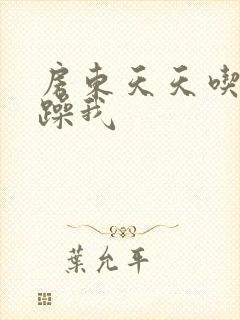 房東天天喫
躁我
葉允平